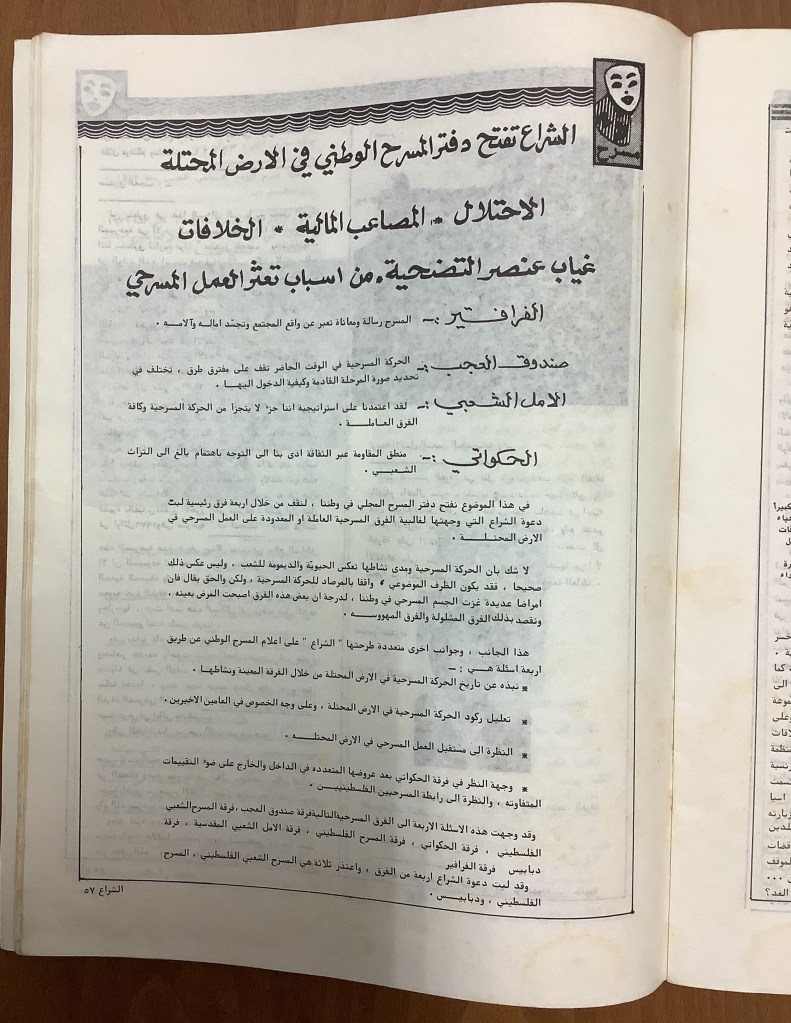 مسرح
الشراع تفتح دفتر المسرح الوطني في الارض المحتلة
الاحتلال * المصاعب المالية * الخلافات
غياب عنصر التضحية . من اسباب تعثر العمل المسرحي
الفرافير :ــ المسرح رسالة ومعاناة تعبر عن واقع المجتمع وتجسّد اماله وآلامـه .
صندوق العجب :ــ الحركة المسرحية في الوقت الحاضر تقف على مفترق طرق ، تختلف في
تحديد صورة المرحلة القادمة وكيفية الدخول اليهـا .
الامل الشعبي :ــ لقد اعتمدنا على استراتيجية اننا جزء لا يتجزأ من الحركة المسرحية وكافة
الفرق العاملـــة .
الحكواتي :ــ منطق المقاومة عبر الثقافة ادى بنا الى التوجه باهتمام بالغ الى التراث
الشعبـــي .
في هذا الموضوع نفتح دفتر المسرح المحلي في وطننا ، لنقف من خلال اربعة فرق رئيسية لبت
دعوة الشراع التي وجهتها لغالبية الفرق المسرحية العاملة او المعدودة على العمل المسرحي في
الارض المحتلـــة .
لا شك بان الحركة المسرحية ومدى نشاطها تعكس الحيويّة والديمومة للشعب ، وليس عكس ذلك
صحيحا ، فقد يكون الظرف الموضوعي ، واقفا بالمرصاد للحركة المسرحية ، ولكن والحق يقال فان
امراضا عديدة غزت الجسم المسرحي في وطننا ، لدرجة ان بعض هذه الفرق اصبحت المرض بعينه ،
ونقصد بذلك الفرق المشلولة والفرق المهووســه .
هذا الجانب ، وجوانب اخرى متعددة طرحتها " الشراع " على اعلام المسرح الوطني عن طريق
اربعة اسئلة هـــي :ــ
* نبذه عن تاريخ الحركة المسرحية في الارض المحتلة من خلال الفرقة المعينة ونشاطهـا .
* تعليل ركود الحركة المسرحية في الارض المحتلة ، وعلى وجه الخصوص في العامين الاخيرين .
* النظرة الى مستقبل العمل المسرحي في الارض المحتلـــه .
* وجهة النظر في فرقة الحكواتي بعد عروضها المتعدده في الداخل والخارج على ضوء التقييمات
المتفاوته ، والنظرة الى رابطة المسرحيين الفلسطينييـــن .
وقد وجهت هذه الاسئلة الاربعة الى الفرق المسرحية التالية فرقة صندوق العجب ، فرقة المسرح الشعبي
الفلسطيني ، فرقة الحكواتي ، فرقة المسرح الفلسطيني ، فرقة الامل الشعبي المقدسية ، فرقة
دبابيس فرقة الفرافير
وقد لبت دعوة الشراع اربعة من الفرق ، واعتذر ثلاثة هي المسرح الشعبي الفلسطيني ، المسرح
الفلسطيني ، ودبابيـــس .
الشراع ٥٧